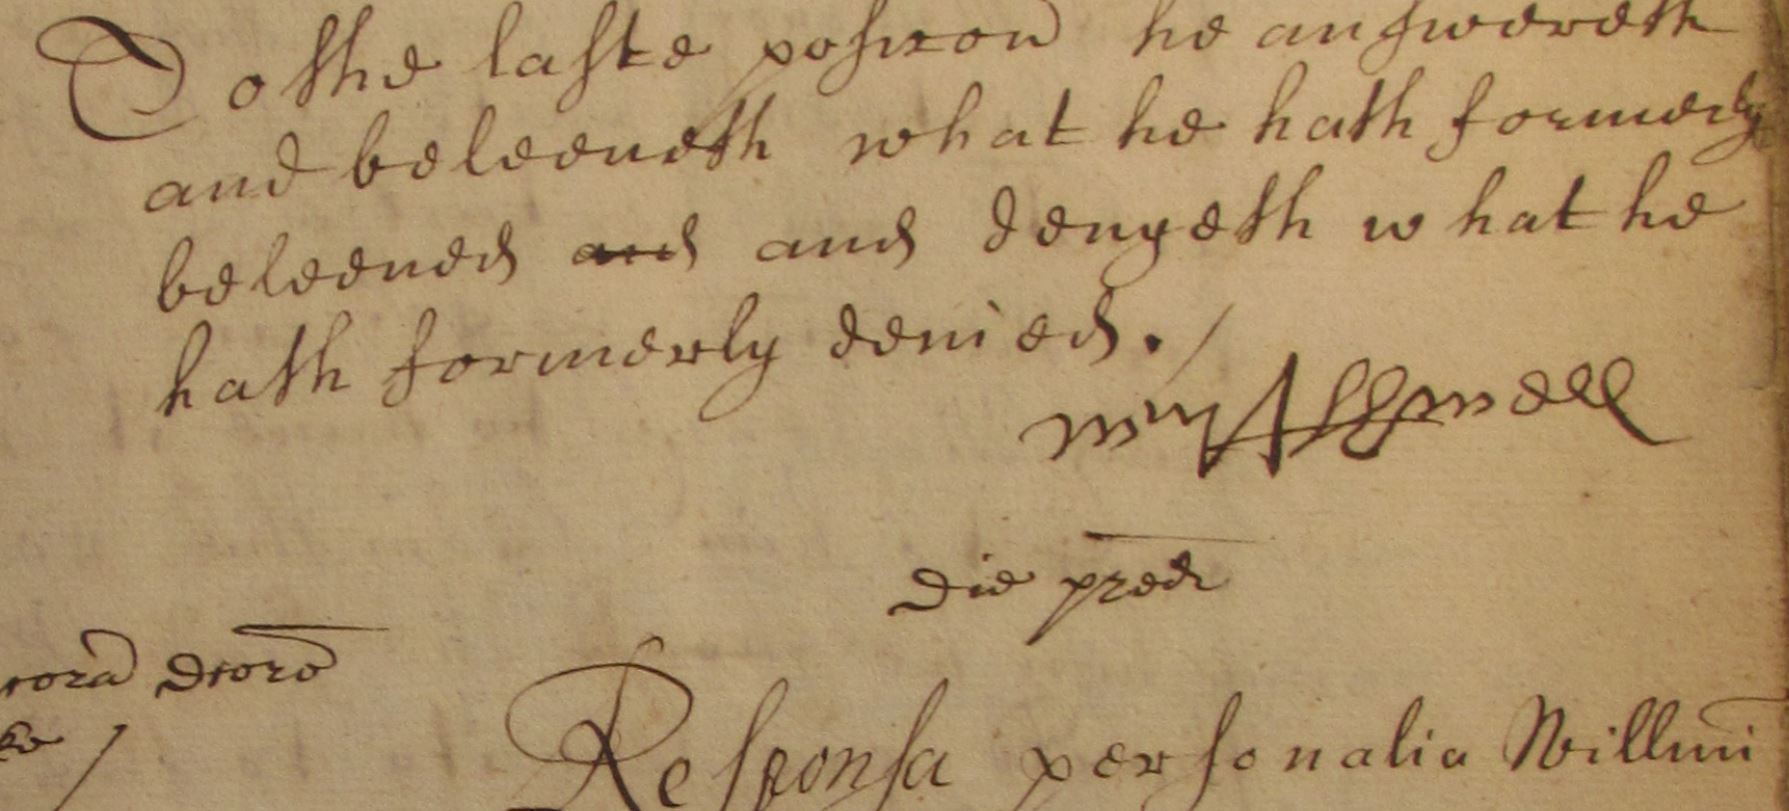 To the laste posicon he answereth
and beleeueth what he hath formerly
beleeued and and denyeth what he
hath formerly denied ./
Wm Ashwell
die pred
corā dcore
Responsa personalia Willmi